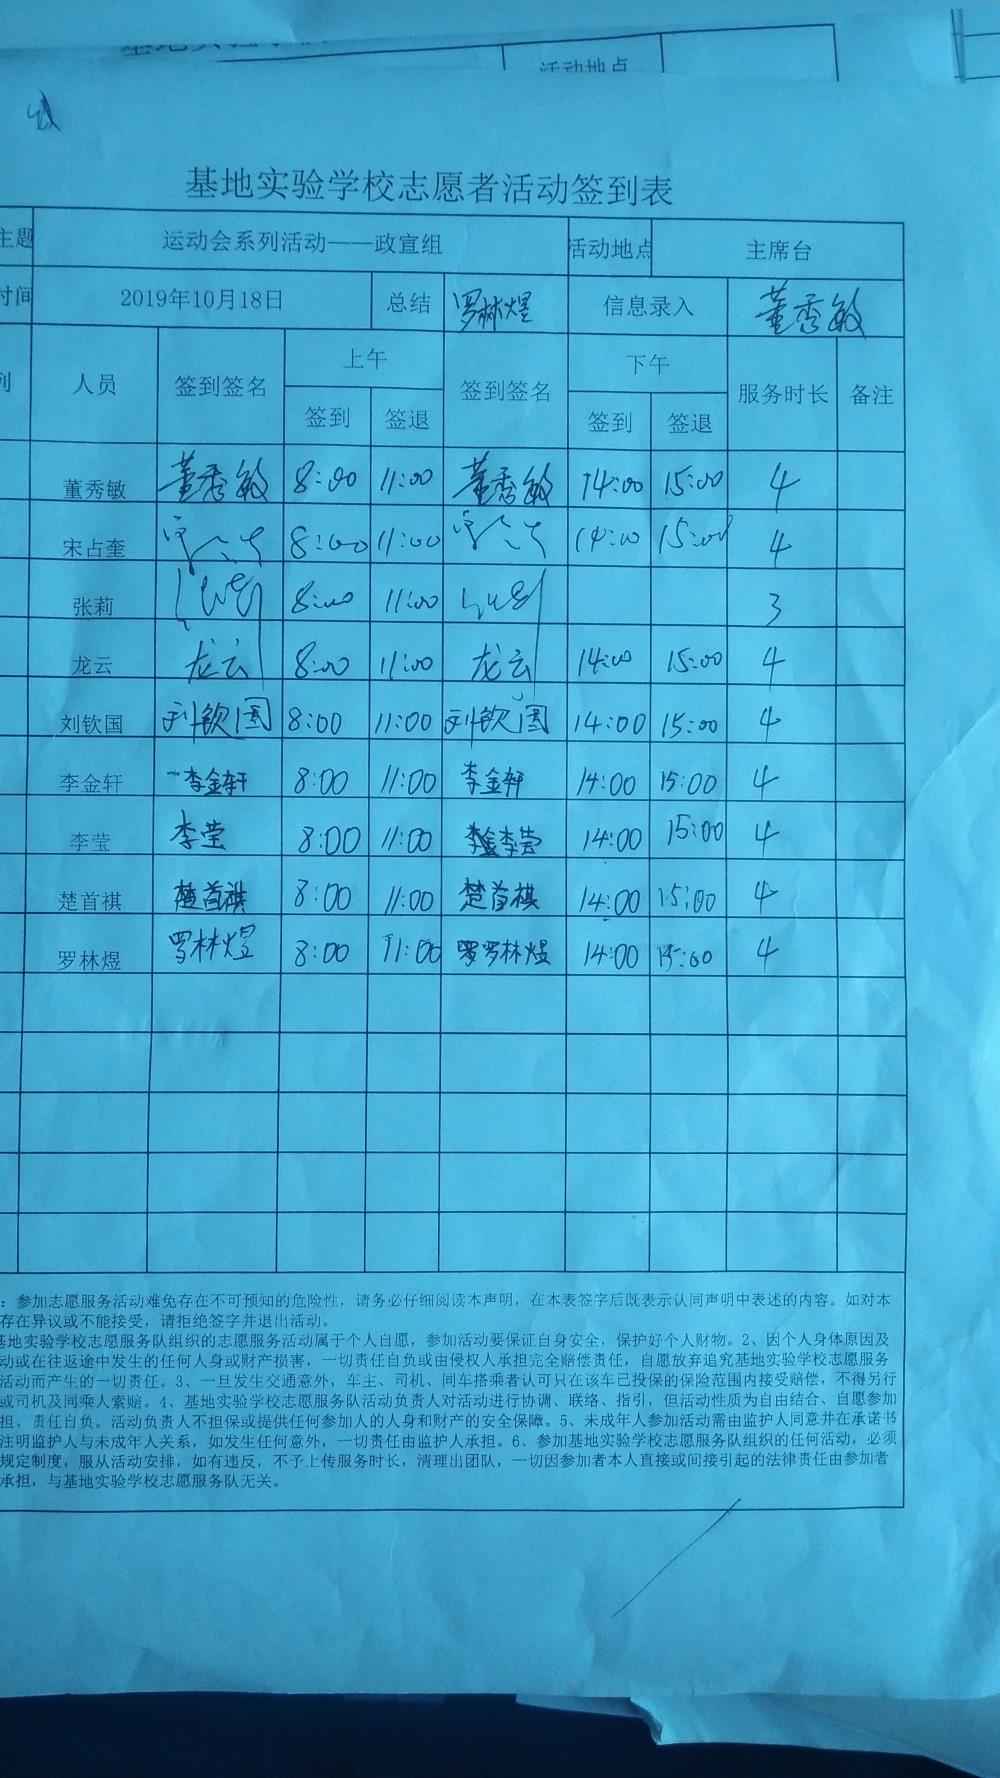 活动地点
基地实验学校志愿者活动签到表
主题 运动会系列活动——政宣组 活动地点 主席台
时间 2019年10月18日 总结 罗林煜 信息录入 董秀敏
列 人员 签到签名 上午 签到签名 下午 服务时长 备注
签到 签退 签到 签退
董秀敏 董秀敏 8:00 11:00 董秀敏 14:00 15:00 4
宋占奎 8:00 11:00 14:00 15:00 4
张莉 8:00 11:00 3
龙云 龙云 8:00 11:00 龙云 14:00 15:00 4
刘钦国 刘钦国 8:00 11:00 刘钦国 14:00 15:00 4
李金轩 李金轩 8:00 11:00 李金轩 14:00 15:00 4
李莹 李莹 8:00 11:00 李莹 14:00 15:00 4
楚首祺 楚首祺 8:00 11:00 楚首祺 14:00 15:00 4
罗林煜 罗林煜 8:00 11:00 罗林煜 14:00 15:00 4
：参加志愿服务活动难免存在不可预知的危险性，请务必仔细阅读本声明，在本表签字后既表示认同声明中表述的内容。如对本
存在异议或不能接受，请拒绝签字并退出活动。
基地实验学校志愿服务队组织的志愿服务活动属于个人自愿，参加活动要保证自身安全，保护好个人财物。2、因个人身体原因及
动或在往返途中发生的任何人身或财产损害，一切责任自负或由侵权人承担完全赔偿责任，自愿放弃追究基地实验学校志愿服务
活动而产生的一切责任。3、一旦发生交通意外，车主、司机、同车搭乘者认可只在该车已投保的保险范围内接受赔偿，不得另行
或司机及同乘人索赔。4、基地实验学校志愿服务队活动负责人对活动进行协调、联络、指引，但活动性质为自由结合、自愿参加
担、责任自负。活动负责人不担保或提供任何参加人的人身和财产的安全保障。5、未成年人参加活动需由监护人同意并在承诺书
注明监护人与未成年人关系，如发生任何意外，一切责任由监护人承担。6、参加基地实验学校志愿服务队组织的任何活动，必须
规定制度，服从活动安排，如有违反，不予上传服务时长，清理出团队，一切因参加者本人直接或间接引起的法律责任由参加者
承担，与基地实验学校志愿服务队无关。